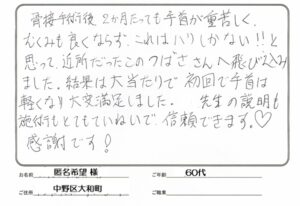 骨接手術後 2か月たっても手首が重苦しく、
むくみも良くならず、これはハリしかない!!と
思って、近所だったこのつばささんへ飛び込み
ました。結果は大当たりで初回で手首は
軽くなり大変満足しました。 先生の説明も
施術もとてもていねいで信頼できます。♡
感謝です!
お名前 匿名希望 様 ご年齢 60代
ご住所 中野区大和町 ご職業